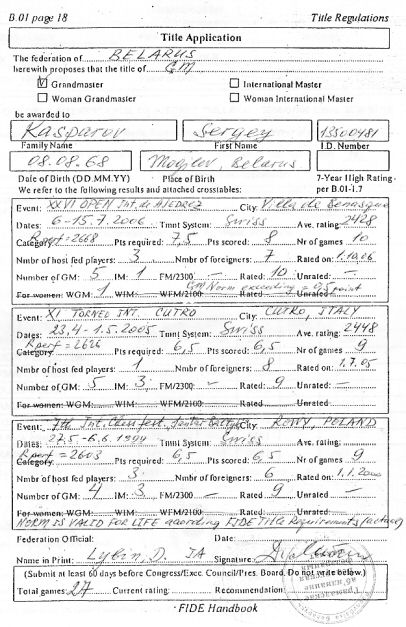 B.01 page 18 Title Regulations
Title Application
The federation of BELARUS
herewith proposes that the title of GM
Grandmaster International Master
Woman Grandmaster Woman International Master
be awarded to
Kasparov Sergey 13500481
Family Name First Name I.D. Number
08.08.68 Mogilev, Belarus
Date of Birth (DD.MM.YY) Place of Birth 7-Year High Rating
We refer to the following results and attached crosstables: per B.01-1.7
Event: XXVI OPEN Int. de AJEDREZ City: Villa de Benasque
Dates: 6-15.7.2006 Tmnt System: Swiss Ave. rating: 2428
Category Rperf = 2668 Pts required: 7,5 Pts scored: 8 Nr of games 10
Nmbr of host fed players: 3 Nmbr of foreigners: 7 Rated on: 1.10.06
Number of GM: 5 IM: 1 FM/2300 – Rated: 10 Unrated: –
For women: WGM: 1 WIM: WFM/2100: GM Norm exceeding = 0,5 point
Event: XI TORNEO INT. CUTRO City: CUTRO, ITALY
Dates: 23,4-1.5.2005 Tmnt System: Swiss Ave. rating: 2448
Category Rperf = 2626 Pts required: 6,5 Pts scored: 6,5 Nr of games 9
Nmbr of host fed players: 1 Nmbr of foreigners: 8 Rated on: 1.7.05
Number of GM: 5 IM: 3 FM/2300: – Rated: 9 Unrated: –
For women: WGM: WIM: WFM/2100:
Event: 7th Int. Chess fest. City: ROWY, POLAND
Dates: 27.5-6.6.1999 Tmnt System: Swiss Ave. rating:
Category Rperf = 2603 Pts required: 6,5 Pts scored: 6,5 Nr of games 9
Nmbr of host fed players: 3 Nmbr of foreigners: 6 Rated on: 1.1.2000
Number of GM: 4 IM: 3 FM/2300 – Rated: 9 Unrated: –
For women: WGM: WIM: WFM/2100:
NORM IS VALID FOR LIFE according FIDE Title Requirements
Federation Official: Date:
Name in Print: Lybin D. IA Signature:
(Submit at least 60 days before Congress/Exec. Council/Pres. Board. Do not write below.)
Total games: 27 Current rating: Recommendation:
FIDE Handbook